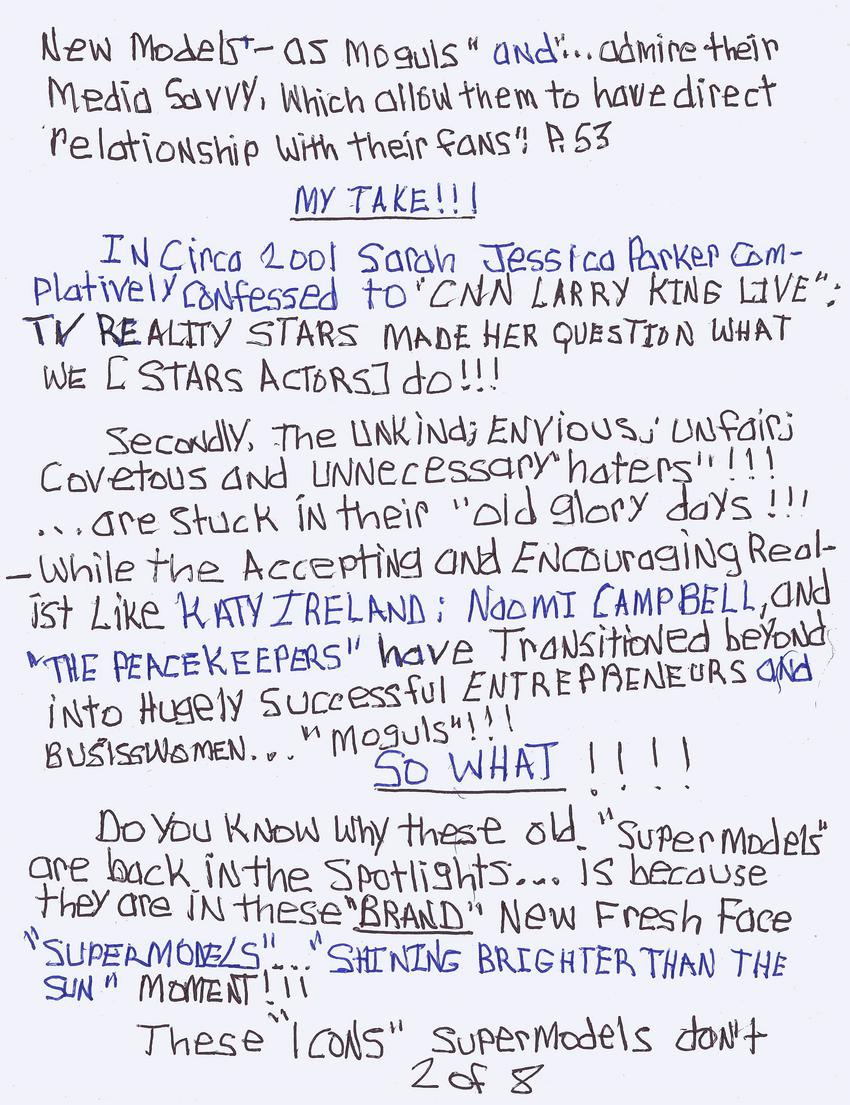 New Models" - as Moguls" and "... admire their
Media Savvy, Which allow them to have direct
relationship with their fans"! P.53
MY TAKE!!!
IN Circa 2001 Sarah Jessica Parker Com-
Platively Confessed to "CNN LARRY KING LIVE":
TV REALITY STARS MADE HER QUESTION WHAT
WE [STARS ACTORS] do!!!
Secondly, The UNKind; ENVious; UNfair;
Covetous and UNNecessary "haters"!!!
...are Stuck iN their "old glory days!!!
-While the Accepting and ENCouragiNg Real-
ist Like KATY IRELAND; NaomI CAMPBELL, and
"THE PEACEKEEPERS" have Transitioned beyond
iNto Hugely Successful ENTREPRENEURS and
BUSISSWOMEN... "Moguls"!!!
SO WHAT !!!!
Do You KNow Why these old "SuperModels"
are back iN the Spotlights... is because
they are iN these "BRAND" New Fresh Face
"SUPERMODELS"... "SHINING BRIGHTER THAN THE
SUN" MOMENT!!!
These "ICONS" SuperModels don't
2 of 8